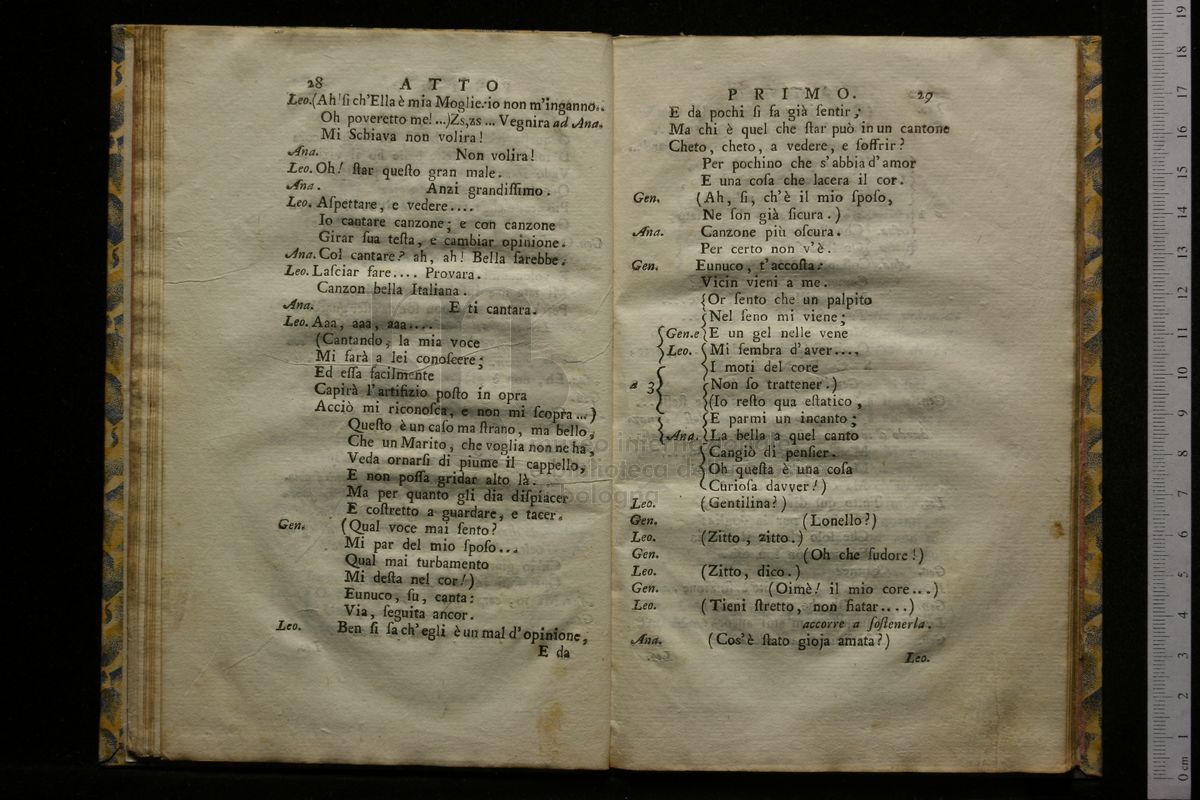 28 ATTO
Leo. (Ah! ſi ch'Ella è mia Moglie: io non m'inganno..
Oh poveretto me!...) Zs, zs ... Vegnira ad Ana.
Mi Schiava non volira!
Ana. Non volira!
Leo. Oh! ſtar queſto gran male.
Ana. Anzi grandiſſimo.
Leo. Aſpettare, e vedere....
Io cantare canzone; e con canzone
Girar ſua teſta, e cambiar opinione.
Ana. Col cantare? ah, ah! Bella ſarebbe.
Leo. Laſciar fare.... Provara.
Canzon bella Italiana.
Ana. E ti cantara.
Leo. Aaa, aaa, aaa....
(Cantando, la mia voce
Mi farà a lei conoſcere;
Ed eſſa facilmente
Capirà l'artifizio poſto in opra
Acciò mi riconoſca, e non mi ſcopra...)
Queſto è un caſo ma ſtrano, ma bello,
Che un Marito, che voglia non ne ha,
Veda ornarſi di piume il cappello,
E non poſſa gridar alto là.
Ma per quanto gli dia diſpiacer
E coſtretto a guardare, e tacer.
Gen. (Qual voce mai ſento?
Mi par del mio ſpoſo...
Qual mai turbamento
Mi deſta nel cor!)
Eunuco, ſu, canta:
Via, ſeguita ancor.
Leo. Ben ſi ſa ch'egli è un mal d'opinione,
E da
PRIMO. 29
E da pochi ſi fa già ſentir;
Ma chi è quel che ſtar può in un cantone
Cheto, cheto, a vedere, e ſoffrir?
Per pochino che s'abbia d'amor
E una coſa che lacera il cor.
Gen. (Ah, ſi, ch'è il mio ſpoſo,
Ne ſon già ſicura.)
Ana. Canzone più oſcura.
Per certo non v'è.
Gen. Eunuco, t'accoſta:
Vicin vieni a me.
(Or ſento che un palpito
Nel ſeno mi viene;
Gen. e E un gel nelle vene
Leo. Mi ſembra d'aver....
I moti del core
a 3 Non ſo trattener.)
(Io reſto qua eſtatico,
E parmi un incanto;
Ana. La bella a quel canto
Cangiò di penſier.
Oh queſta è una coſa
Curioſa davver!)
Leo. (Gentilina?)
Gen. (Lonello?)
Leo. (Zitto, zitto.)
Gen. (Oh che ſudore!)
Leo. (Zitto, dico.)
Gen. (Oimè! il mio core...)
Leo. (Tieni ſtretto, non fiatar....)
accorre a ſoſtenerla.
Ana. (Cos'è ſtato gioja amata?)
Leo.
museo internazionale
e biblioteca della musica
bologna